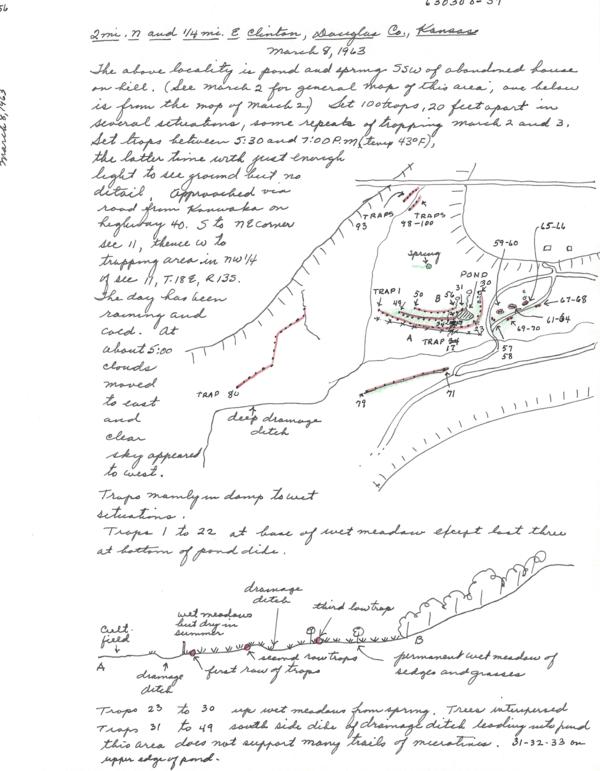 630308-37
56
March 8, 1963
2 mi. N and 1/4 mi. E Clinton, Douglas Co., Kansas
March 8, 1963
The above locality is pond and spring SSW of abandoned house
on hill. (See March 2 for general map of this area, one below
is from the map of March 2.) Set 100 traps, 20 feet apart in
several situations, some repeats of trapping March 2 and 3.
Set traps between 5:30 and 7:00 P.M. (temp 43°F),
the latter time with just enough
light to see ground but no
detail. Approached via
road from Kanwaka on
highway 40. S to NE corner
sec 11, thence W to
trapping area in NW 1/4
of sec 11, T.13S, R18E.
The day has been
raining and
cold. At
about 5:00
clouds
moved
to east
and
clear
sky appeared
to west.
TRAPS
93
TRAPS
98-100
spring
65-66
59-60
POND
TRAP 1
49
50
B
56
31
30
67-68
61-64
69-70
A
TRAP
17
23
57
58
TRAP 80
79
71
deep drainage
ditch
Traps mainly in damp to wet
situations.
Traps 1 to 22 at base of wet meadow except last three
at bottom of pond dike.
drainage
ditch
wet meadows
but dry in
summer
third row trap
Cult.
field
A
B
drainage
ditch
first row of traps
second row traps
permanent wet meadow of
sedges and grasses
Traps 23 to 30 up wet meadows from spring. Trees interspersed
Traps 31 to 49 south side dike of drainage ditch leading into pond
this area does not support many trails of microtines. 31-32-33 on
upper edge of pond.